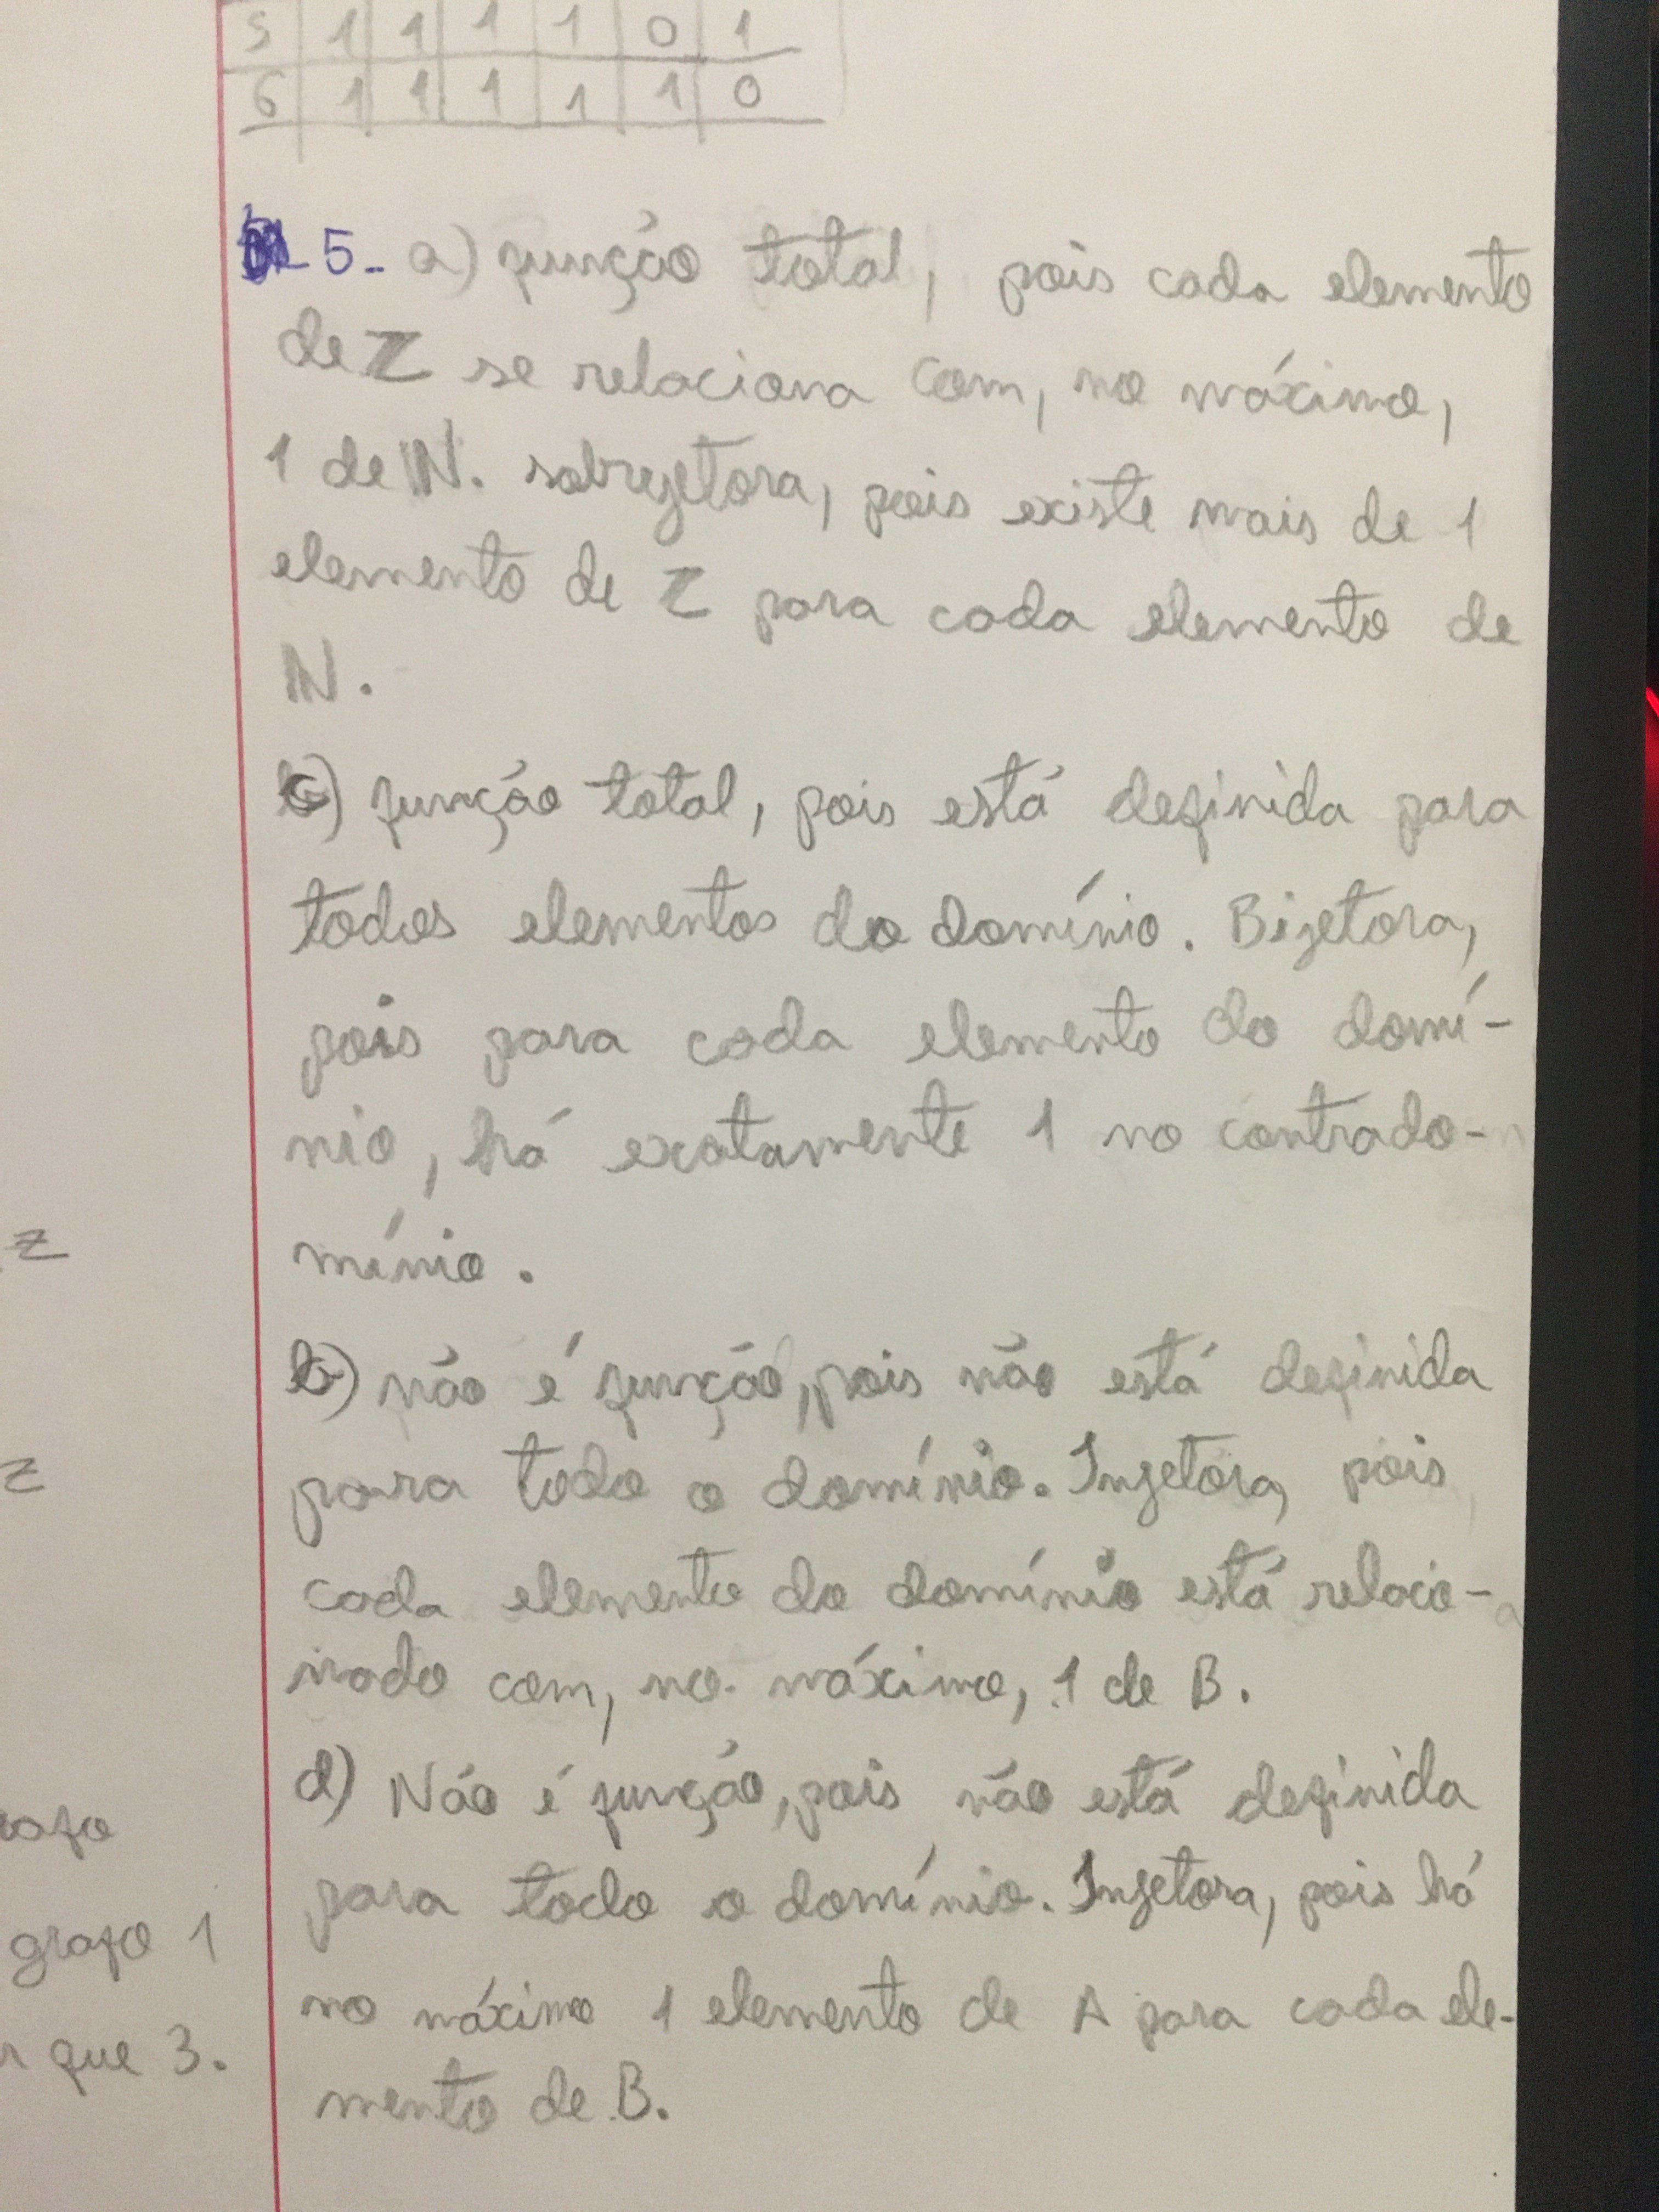 5 1 1 1 1 0 1
6 1 1 1 1 1 0
5- a) função total, pois cada elemento
de Z se relaciona com, no máximo,
1 de IN. sobrejetora, pois existe mais de 1
elemento de Z para cada elemento de
IN.
c) função total, pois está definida para
todos elementos do domínio. Bijetora,
pois para cada elemento do domí-
nio, há exatamente 1 no contrado-
mínio.
b) não é função, pois não está definida
para todo o domínio. Injetora, pois
cada elemento do domínio está relacio-
nado com, no máximo, 1 de B.
d) Não é função, pois não está definida
para todo o domínio. Injetora, pois há
no máximo 1 elemento de A para cada ele-
mento de B.
z
z
grafo 1
que 3.